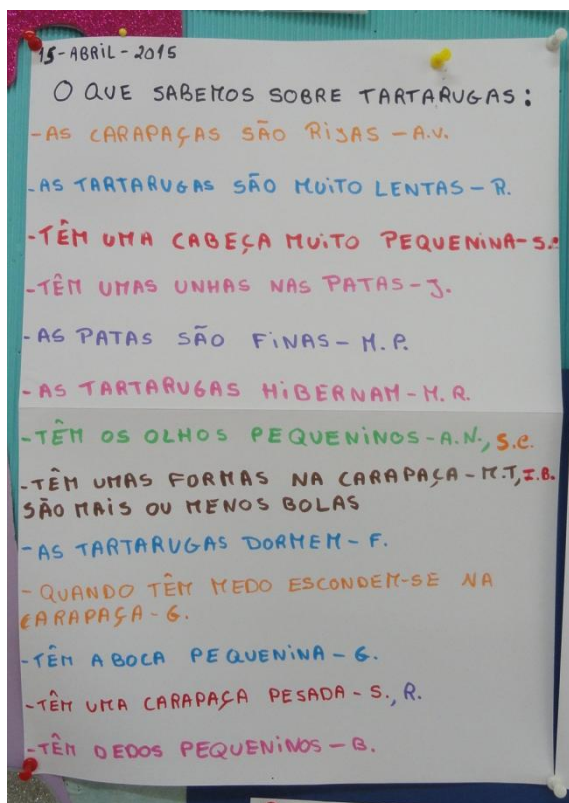 15-ABRIL-2015
O QUE SABEMOS SOBRE TARTARUGAS:
-AS CARAPAÇAS SÃO RIJAS - A.V.
-AS TARTARUGAS SÃO MUITO LENTAS - R.
-TÊM UMA CABEÇA MUITO PEQUENINA- S.C.
-TÊM UMAS UNHAS NAS PATAS - J.
-AS PATAS SÃO FINAS - M.P.
-AS TARTARUGAS HIBERNAM - M.R.
-TÊM OS OLHOS PEQUENINOS - A.N., S.C.
-TÊM UMAS FORMAS NA CARAPAÇA - M.T, I.B.
SÃO MAIS OU MENOS BOLAS
-AS TARTARUGAS DORMEM - F.
-QUANDO TÊM MEDO ESCONDEM-SE NA
CARAPAÇA - G.
-TÊM A BOCA PEQUENINA - G.
-TÊM UMA CARAPAÇA PESADA - S., R.
-TÊM DEDOS PEQUENINOS - B.